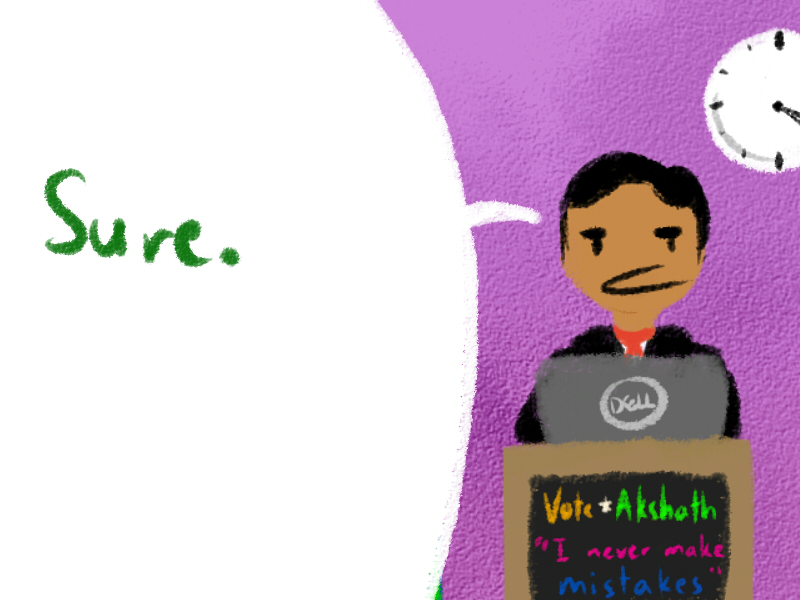 Sure.
DELL
Vote * Akshath
"I never make
mistakes"